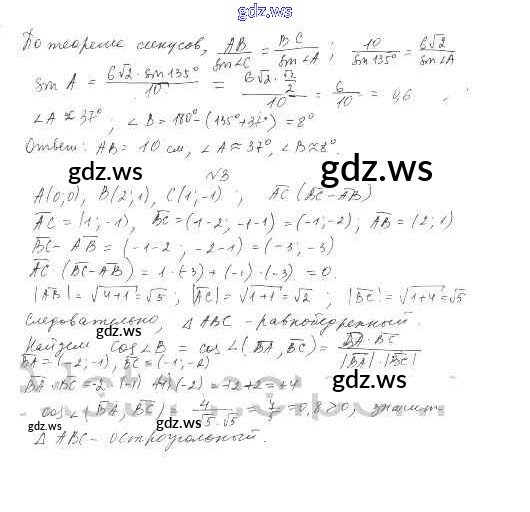 gdz.ws
По теореме синусов, AB/sin∠C = BC/sin∠A ; 10/sin135° = 6√2/sin∠A
sin A = 6√2 · sin135°/10 = 6√2 · √2/2/10 = 6/10 = 0,6
∠A ≈ 37° ; ∠B = 180° - (135° + 37°) = 8°
Ответ: AB = 10 см, ∠A ≈ 37°, ∠B ≈ 8°.
gdz.ws
gdz.ws
№3
A(0;0), B(2;1), C(1;-1) ; AC (BC - AB)
AC = (1; -1), BC = (1-2; -1-1) = (-1; -2) ; AB = (2; 1)
gdz.ws
BC - AB = (-1-2; -2-1) = (-3; -3)
AC · (BC - AB) = 1 · (-3) + (-1) · (-3) = 0.
|AB| = √4+1 = √5 ; |AC| = √1+1 = √2 ; |BC| = √1+4 = √5
Следовательно, Δ ABC - равнобедренный.
Найдем cos∠B = cos∠(BA, BC) = BA · BC/|BA| · |BC|
BA = (-2; -1), BC = (-1; -2)
gdz.ws
BA · BC = -2 · (-1) + (-1) · (-2) = +2 + 2 = +4
cos∠(BA, BC) = 4/√5·√5 = 4/5 = 0,8 > 0, значит
gdz.ws
Δ ABC - остроугольный.
gdz.ws